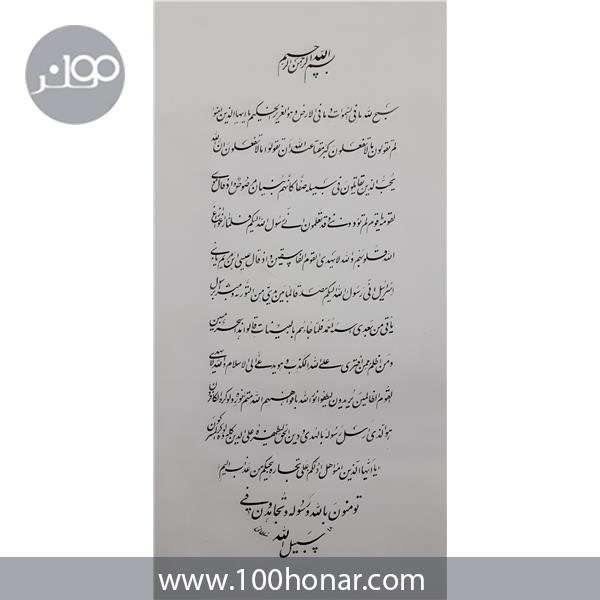 بسم الله الرحمن الرحیم
سبح لله ما فی السموات و ما فی الارض و هو العزیز الحکیم یا ایها الذین امنوا
لم تقولون ما لا تفعلون کبر مقتا عند الله ان تقولوا ما لا تفعلون ان الله
یحب الذین یقاتلون فی سبیله صفا کانهم بنیان مرصوص و اذ قال موسی
لقومه یا قوم لم تؤذوننی و قد تعلمون انی رسول الله الیکم فلما زاغوا ازاغ
الله قلوبهم و الله لا یهدی القوم الفاسقین و اذ قال عیسی ابن مریم یا بنی
اسرائیل انی رسول الله الیکم مصدقا لما بین یدی من التوریة و مبشرا برسول
یأتی من بعدی اسمه احمد فلما جاءهم بالبینات قالوا هذا سحر مبین
و من اظلم ممن افتری علی الله الکذب و هو یدعی الی الاسلام و الله لا یهدی
القوم الظالمین یریدون لیطفؤا نور الله بافواههم و الله متم نوره و لو کره الکافرون
هو الذی ارسل رسوله بالهدی و دین الحق لیظهره علی الدین کله و لو کره المشرکون
یا ایها الذین امنوا هل ادلکم علی تجارة تنجیکم من عذاب الیم
تومنون بالله و رسوله و تجاهدون فی
سبیل الله
www.100honar.com